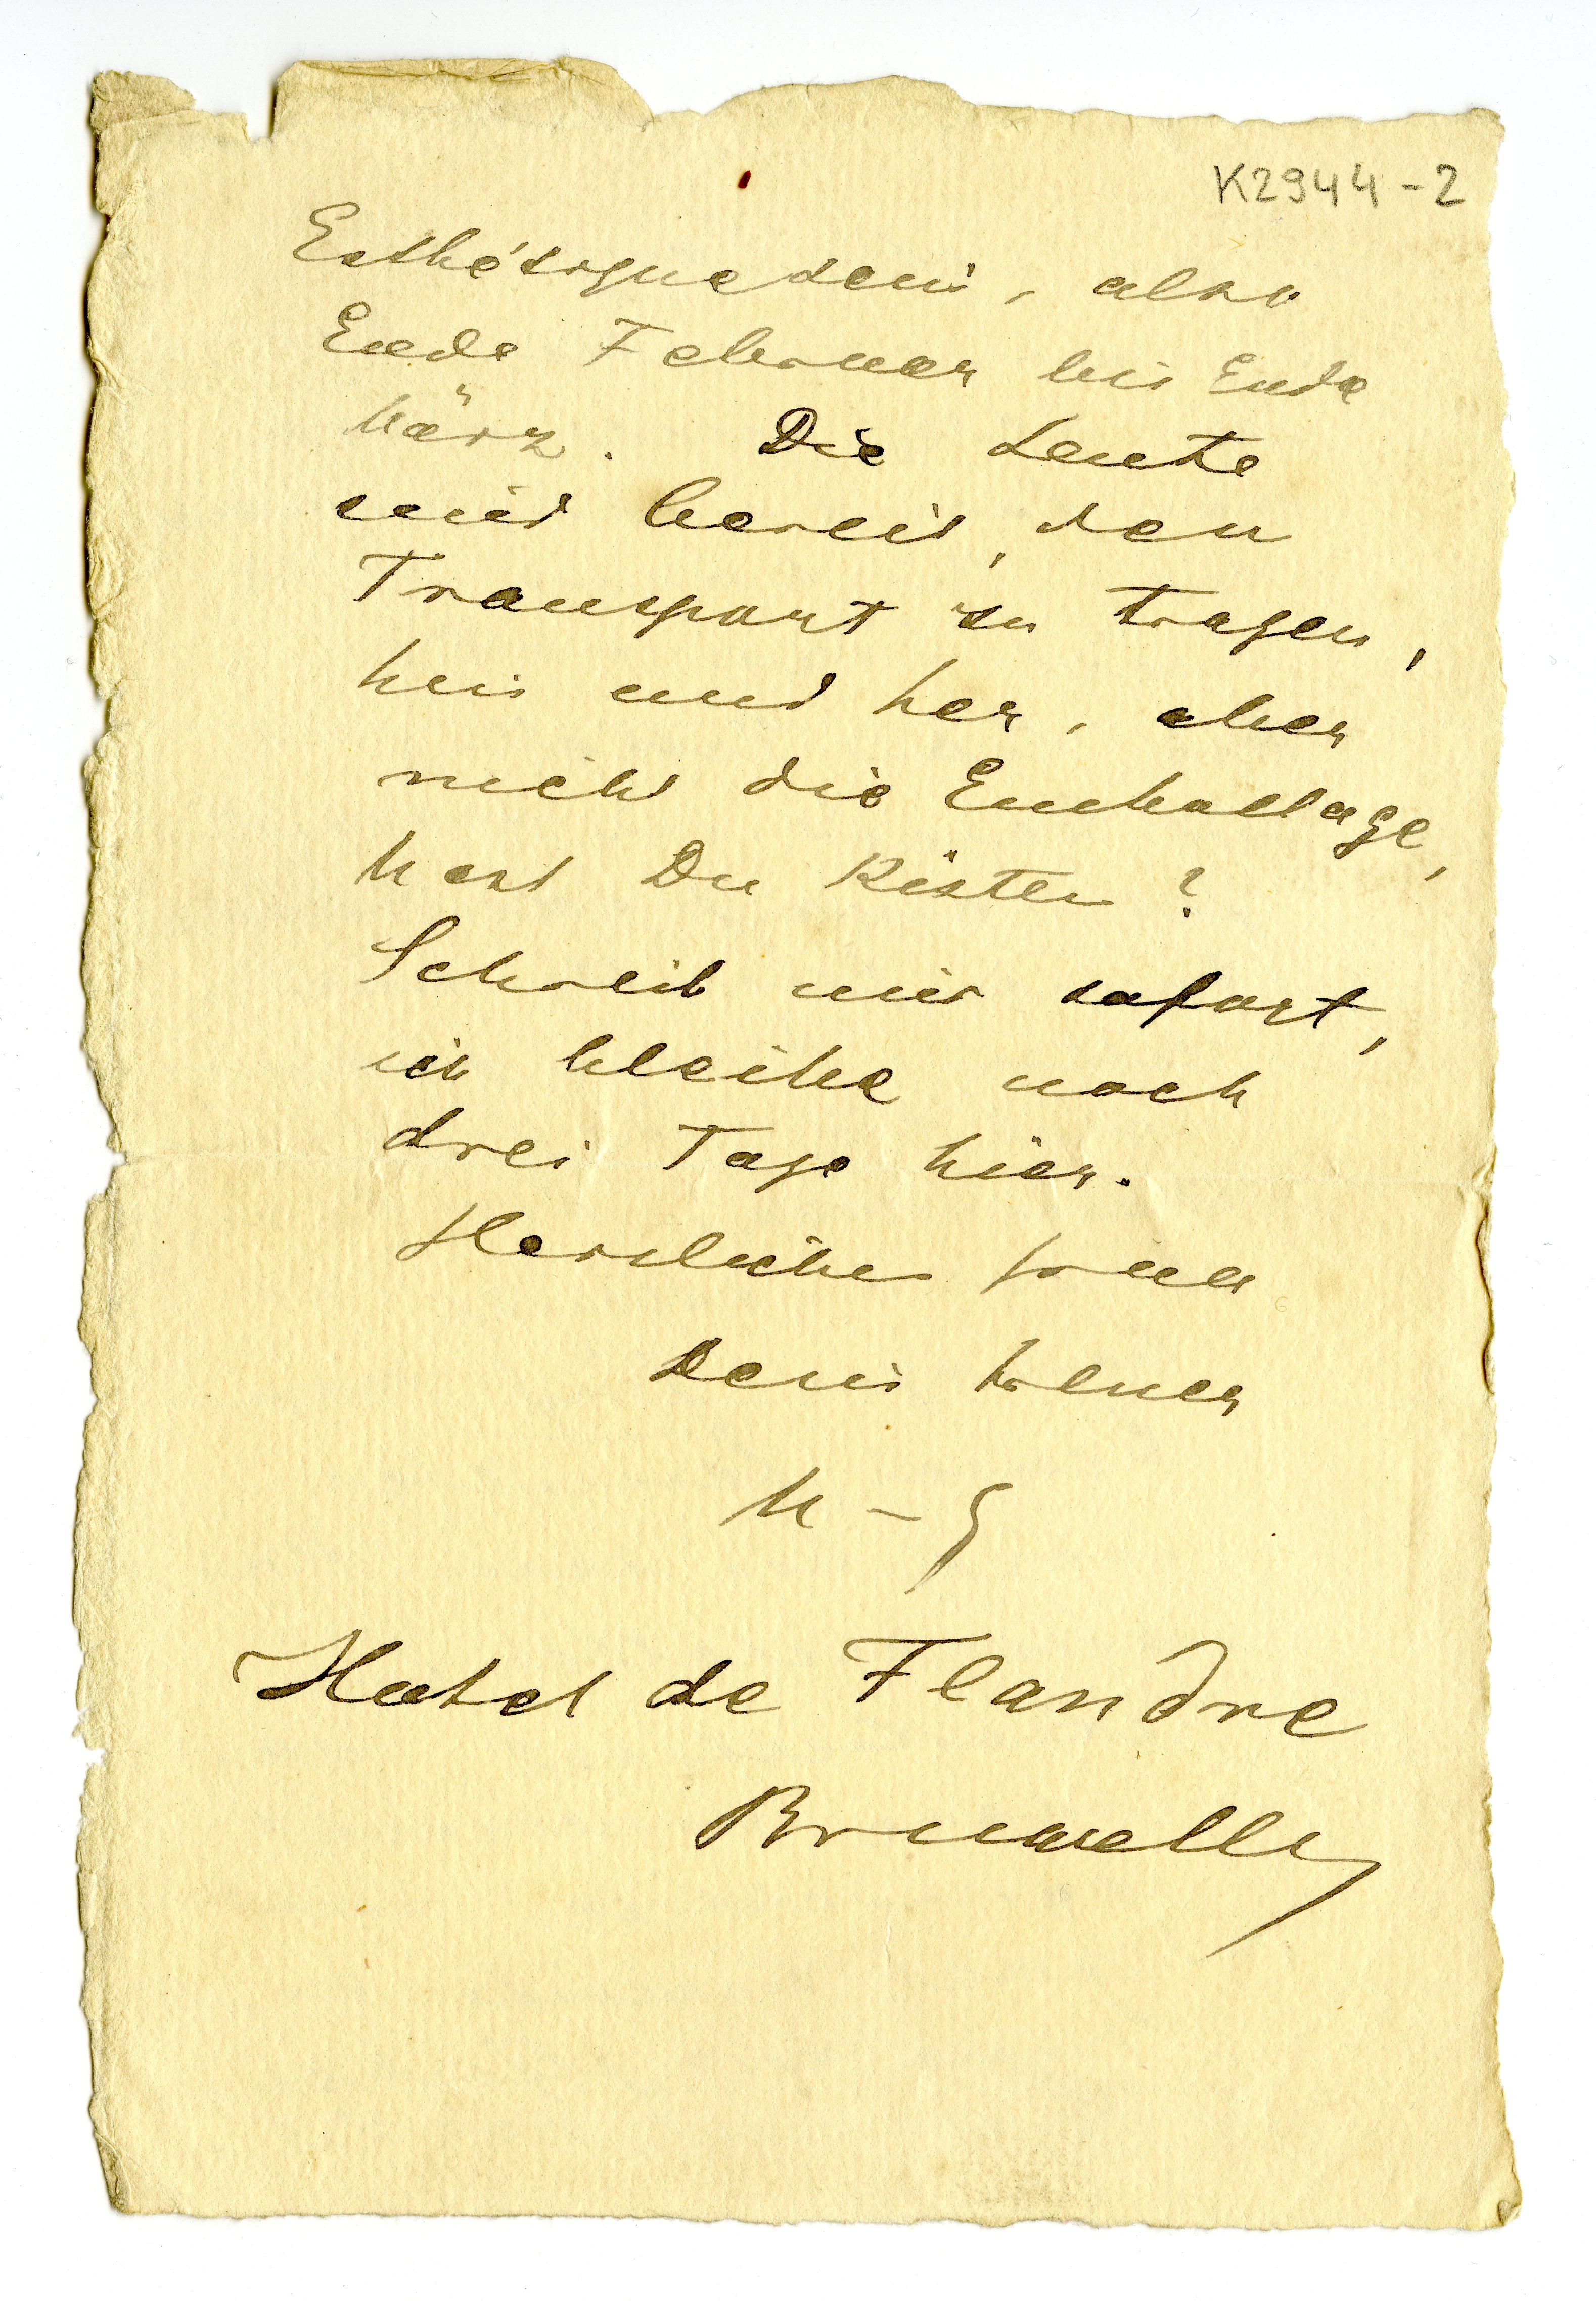 K2944-2
Esthétique sein, also
Ende Februar bis Ende
März. Die Leute
sind bereit, den
Transport zu tragen,
hin und her, aber
nicht die Emballage,
hast Du Kisten?
Schreib mir sofort,
ich bleibe noch
drei Tage hier.
Herzlichen
Dein treuer
M-G
Hotel de Flandre
Bruxelles